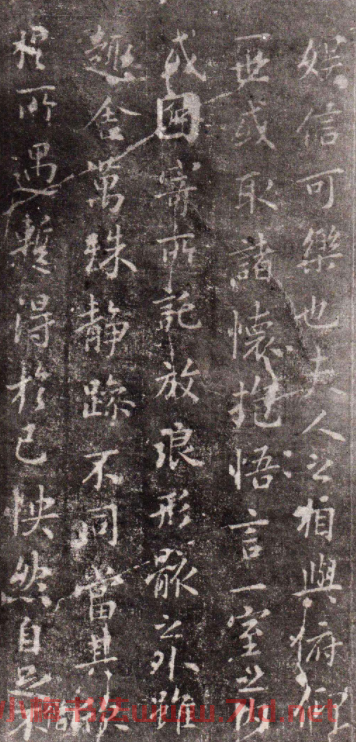 娱信可樂也夫人之相與俯仰
一世或取諸懷抱悟言一室之內
或因寄所託放浪形骸之外雖
趣舍萬殊静躁不同當其欣
於所遇暫得於己怏然自足不
小梅书法www.7ld.net